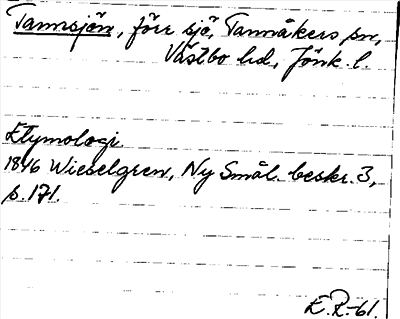 Tannsjön, förr sjö, Tannåkers sn,
Västbo hd, Jönk. l.
Etymologi
1846 Wieselgren, Ny Smål. beskr. 3,
s. 171.
E.R.-61.